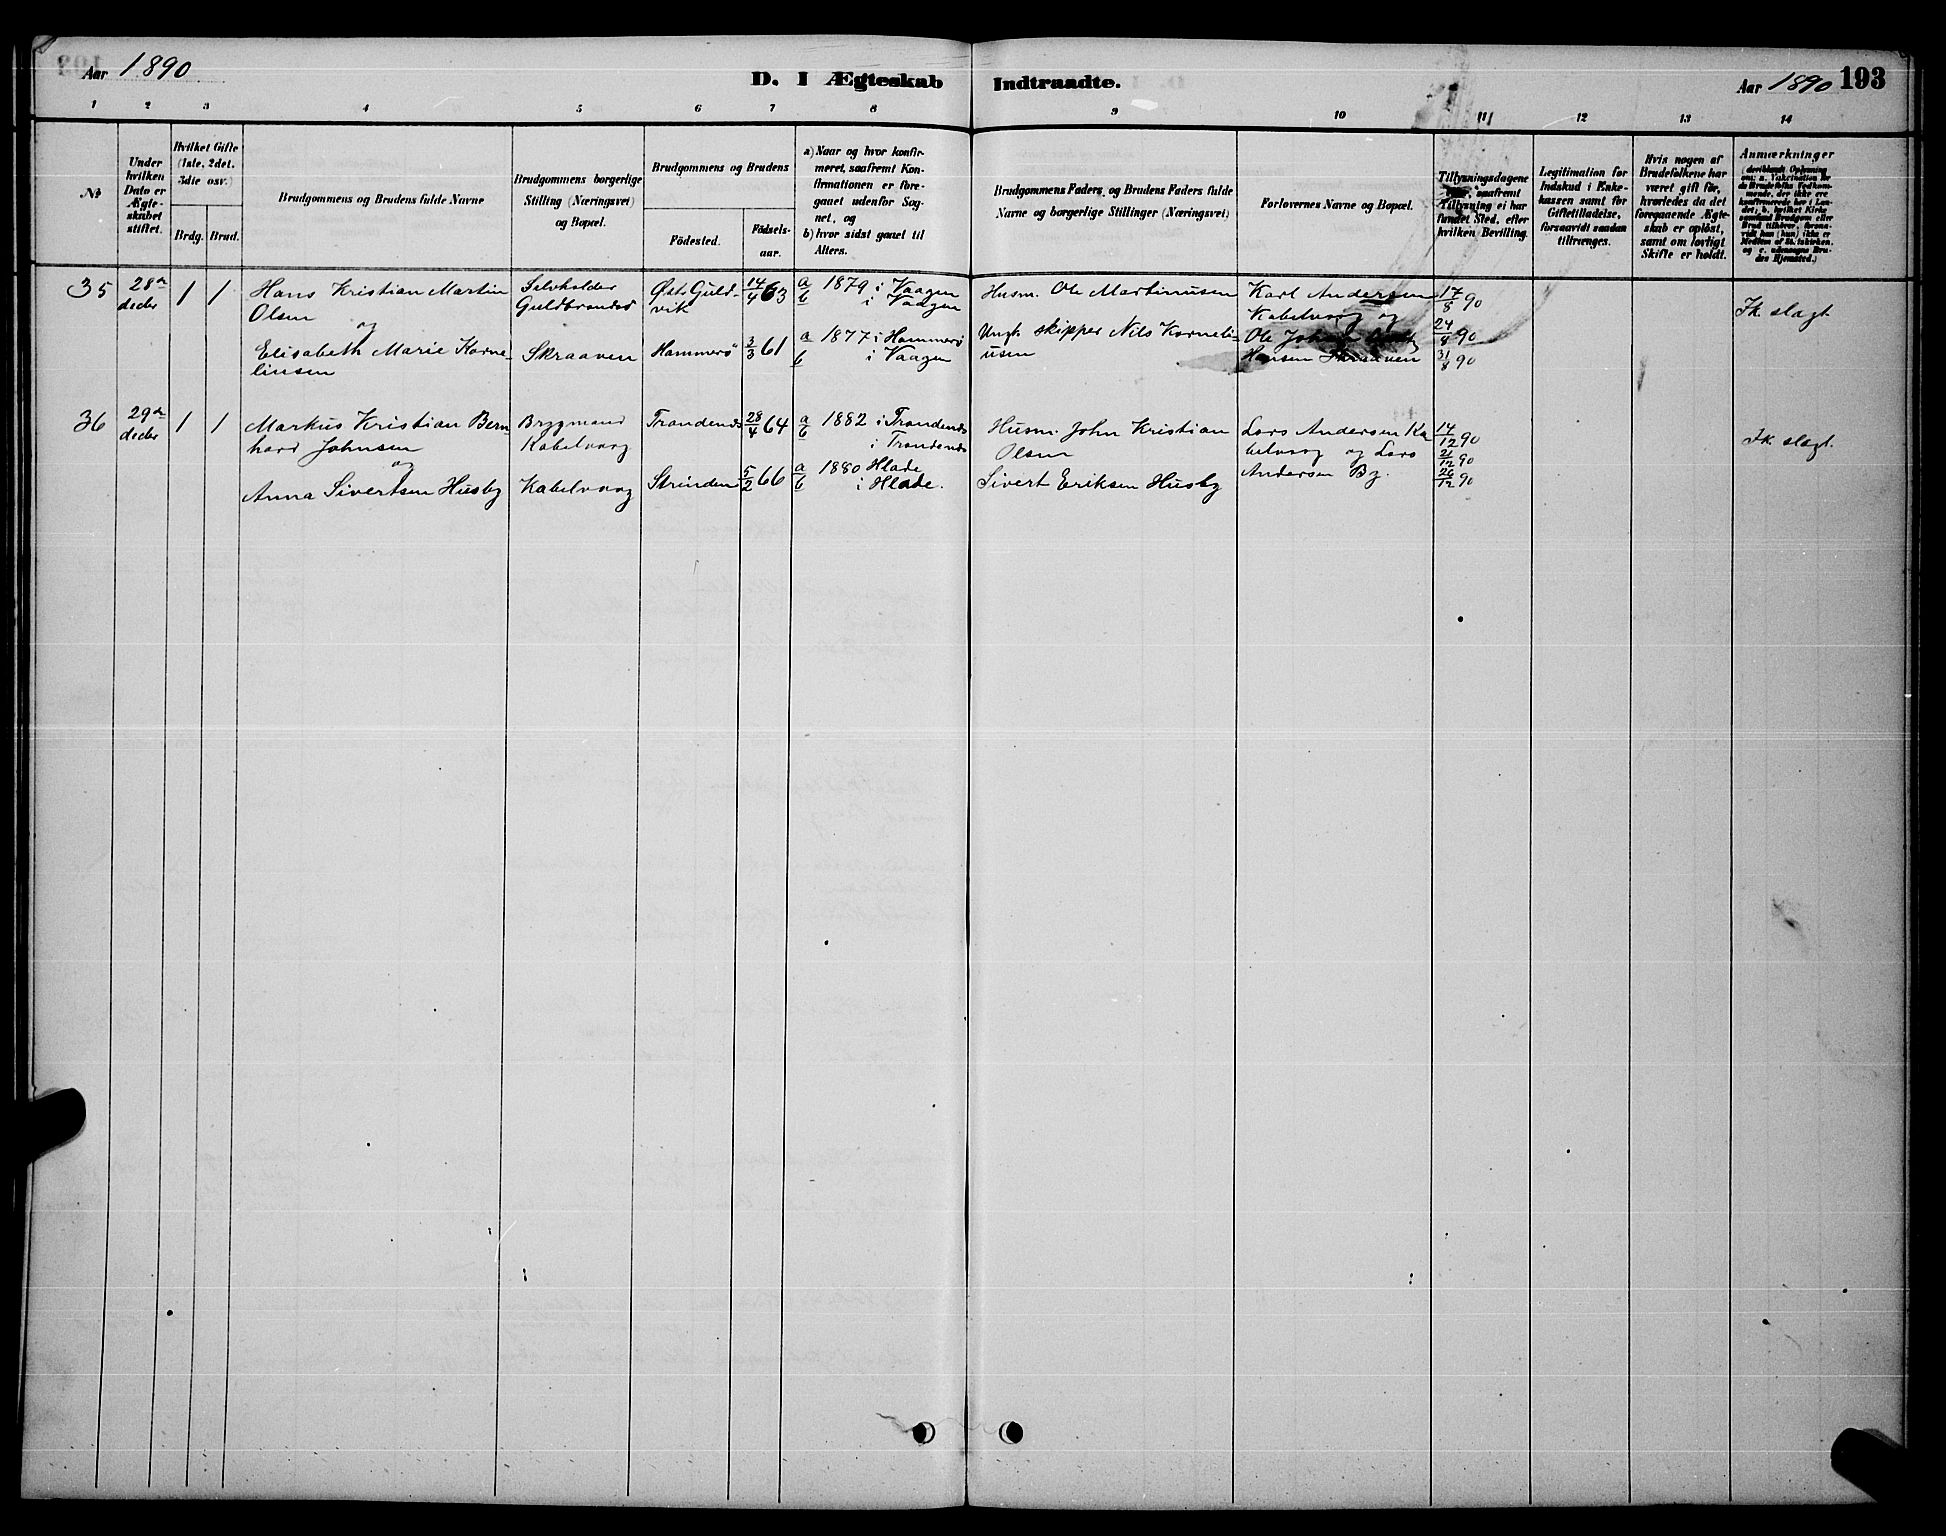 Aar 1890
D. I Ægteskab Indtraadte.
Aar 1890 193
1 2 3 4 5 6 7 8 9 10 11 12 13 14
No
Under hvilken Dato er Ægteskabet stiftet.
Hvilket Gifte (1ste, 2det, 3die osv.)
Brdg. Brud.
Brudgommens og Brudens fulde Navne
Brudgommens borgerlige Stilling (Næringsvei) og Bopæl.
Brudgommens og Brudens
Födested.
Födsels-aar.
a) Naar og hvor konfir-
meret, saafremt Kon-
firmationen er fore-
gaaet udenfor Sog-
net, og
b) hvor sidst gaaet til
Alters.
Brudgommens Faders og Brudens Faders fulde
Navne og borgerlige Stillinger (Næringsvei)
Forlovernes Navne og Bopæl.
Tillysningsdagene
saafremt
Tillysning ei har
fundet Sted, efter
hvilken Bevilling.
Legitimation for
Indskud i Enke-
kassen samt for
Giftetilladelse,
forsaavidt saadan
tiltrænges.
Hvis nogen af
Brudefolkene har
været gift för,
hvorledes da det
foregaaende Ægte-
skab er oplöst,
samt om lovligt
Skifte er holdt.
Anmærkninger
35 28de decbr 1 1
Hans Kristian Martin
Olsen
og
Elisabeth Marie Korne-
liusen
Selvholder
Guldbrandsö
Skraaven
Øst. Guld-
vik
Hammerö
14/4 63
3/3 61
a 1879 i Vaagen
b i Vaagen
a 1877 i Hammerö
b i Vaagen
Husm. Ole Martinusen
Ungk. skipper Nils Korneli-
usen
Karl Andersen
Kabelvaag og
Ole Johan
Hansen Skraaven
17/8 90
24/8 90
31/8 90
Ik. slagt
36 29de decbr 1 1
Markus Kristian Bern-
hard Johnsen
og
Anna Sivertsen Husby
Brygmand
Kabelvaag
Kabelvaag
Trondenes
Strinden
28/4 64
5/2 66
a 1882 i Trondenes
b i Trondenes
a 1880 Hlade
b i Hlade.
Husm. John Kristian
Olsen
Sivert Eriksen Husby
Lars Andersen Ka
belvaag og Lars
Andersen By.
14/12 90
21/12 90
26/12 90
Ik slagt.